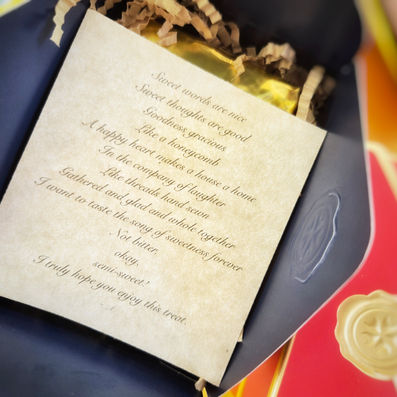 Sweet words are nice
Sweet thoughts are good
Goodness gracious
Like a honeycomb
A happy heart makes a house a home
In the company of laughter
Like threads hand sewn
Gathered and glad and whole together
I want to taste the song of sweetness forever
Not bitter,
okay,
semi-sweet!
I truly hope you enjoy this treat.